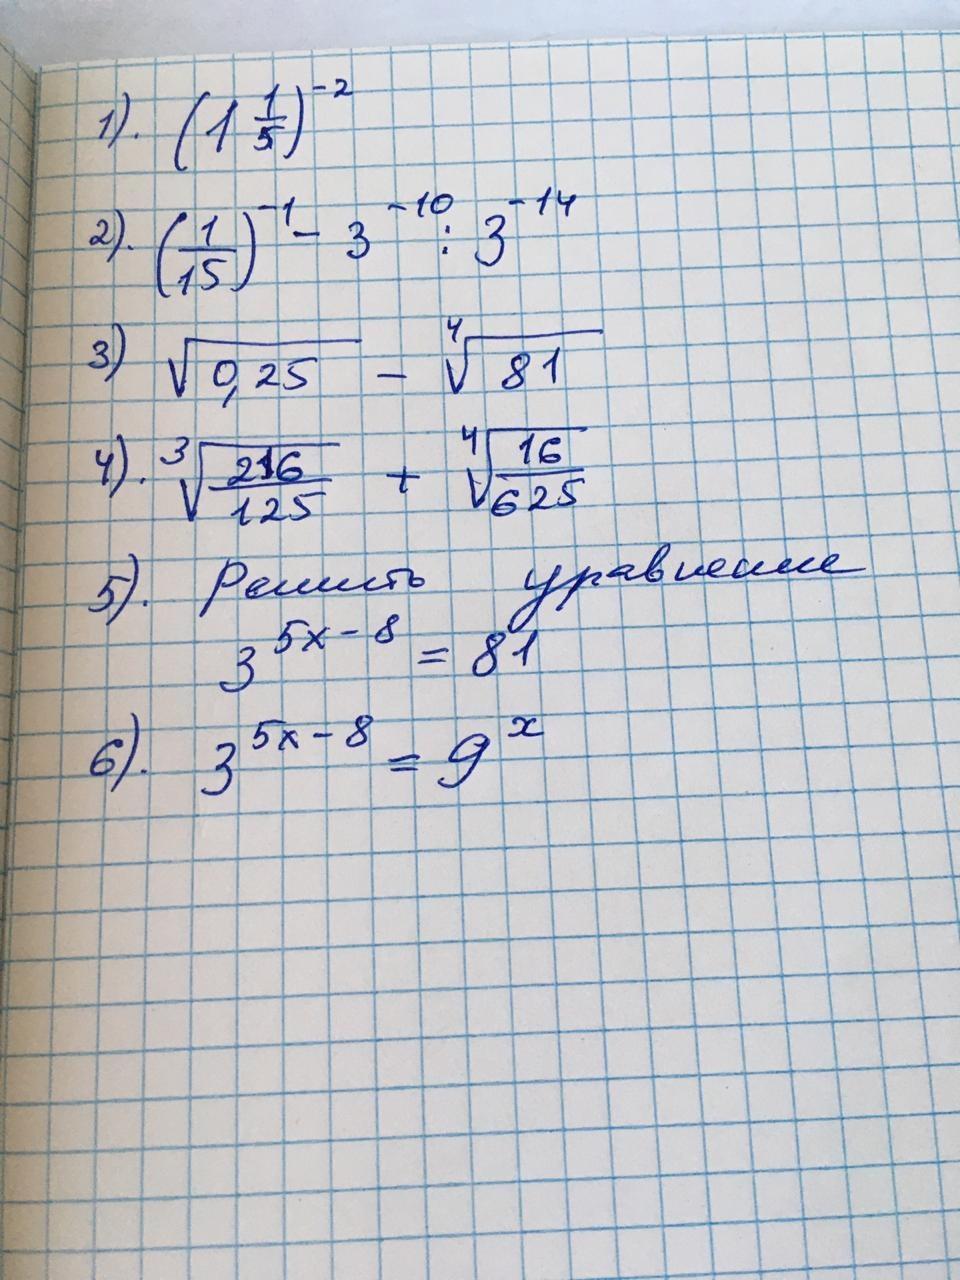 1). (1 1/5)^-2
2). (1/15)^-1 - 3^-10 : 3^-14
3) √0,25 - ⁴√81
4). ³√216/125 + ⁴√16/625
5). Решить уравнение
3^5x-8 = 81
6). 3^5x-8 = 9^x